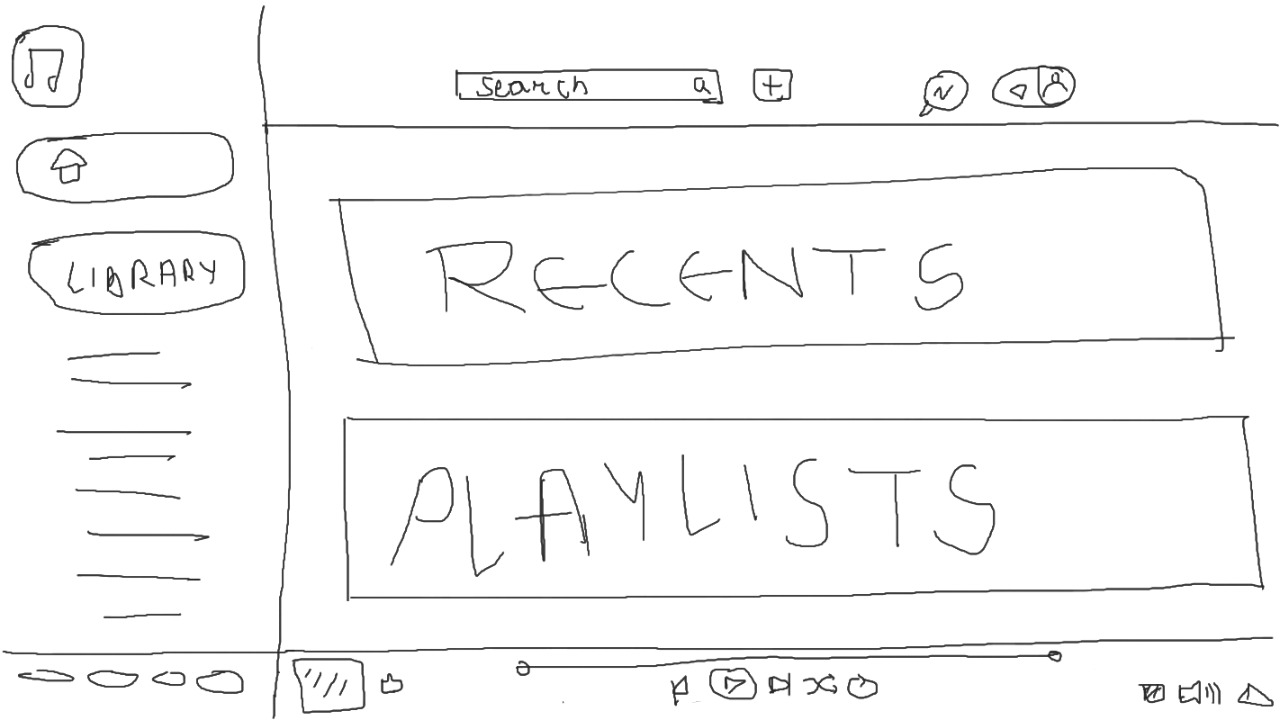 search
N
LIBRARY
RECENTS
PLAYLISTS